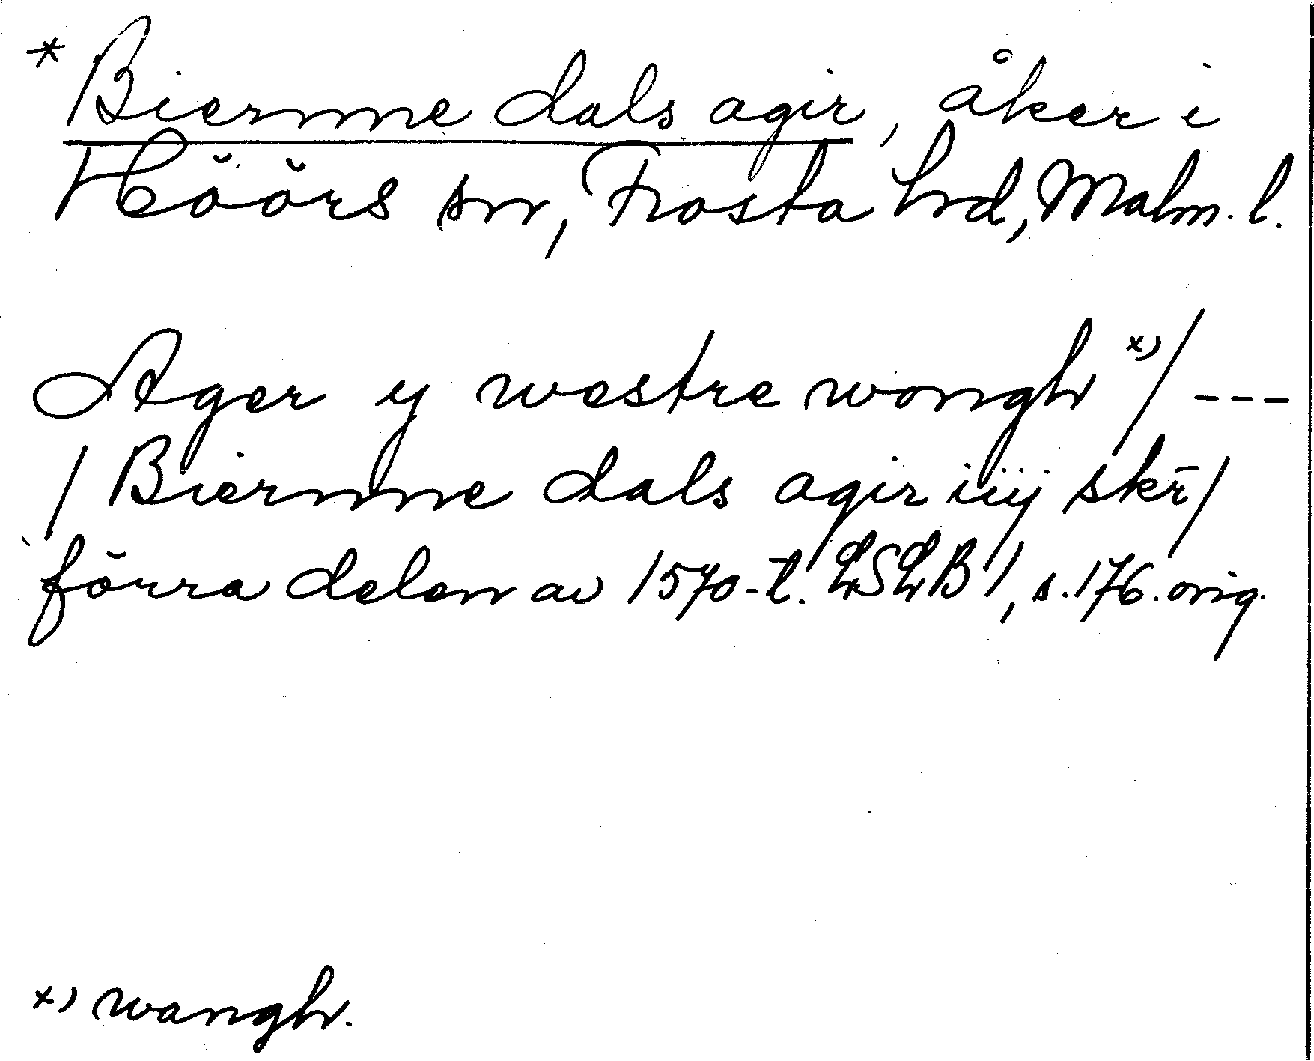 * Biermme dals agir, åker i
Höörs sn, Frosta hd, Malm. l.
Ager y westre wongh x)/ ---
/ Biermme dals agir iiij skr̄/
förra delen av 1570-t. LSLB 1, s. 176. orig.
x) wangh.